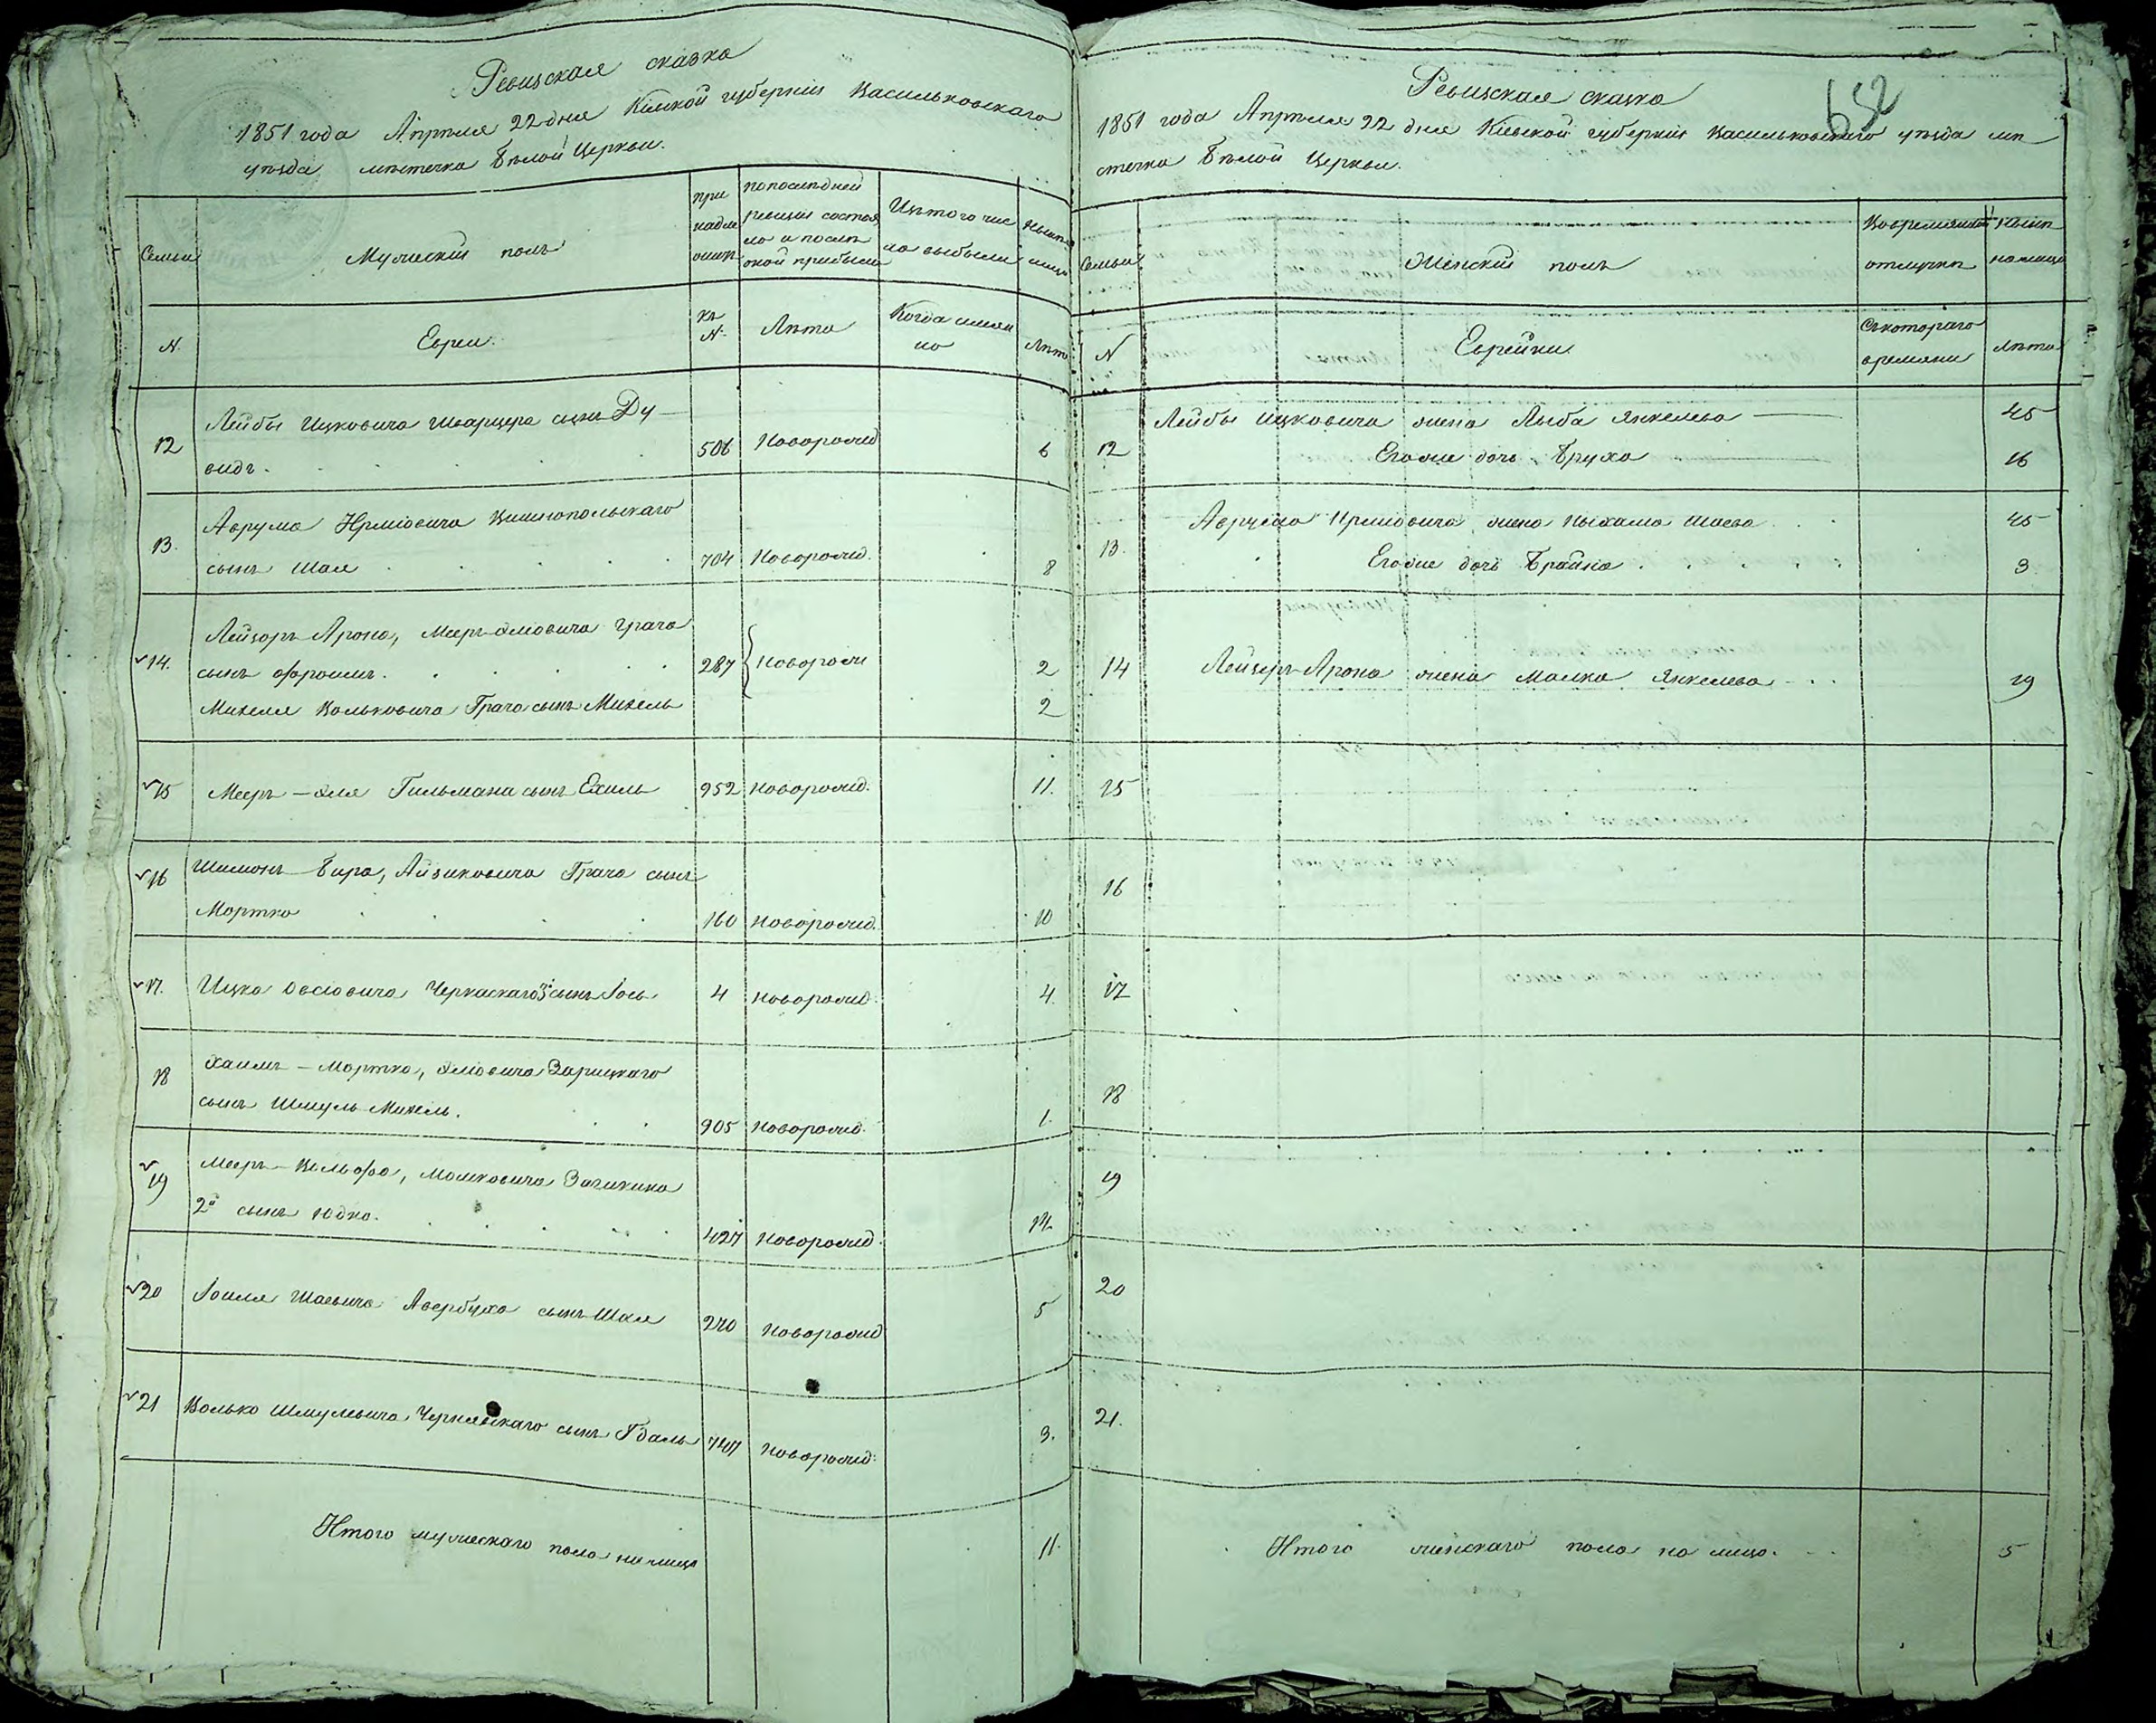 Ревизская сказка
1851 года Апреля 22 дня Киевской губернии Васильковского
уезда местечка Белой Церкви.
Семьи
Мужеский пол
при
надле
жит
по последней
ревизии состоя
ло и после
оной прибыли
Из того чис
ла выбыли
Ныне
лицо
N.
Евреи.
къ
N.
Лета
Когда имен
но
Лета
12
Лейбы Ицковича Шварцера сынъ Ду
видъ.
506
Новорожд
6
13.
Аврума Нрмiовича
сынъ Шая
704
Новорожд.
8
14.
Лейзоръ Арона, Меер-Элiовича Грача
сынъ Фроимъ.
287
Новорож
2
Михеля Вольковича Грача сынъ Михель
2
15
Мееръ-Эля Гильмана сынъ Ехиль
952
Новорожд.
11.
16
Шимонъ-Бира, Айзиковича Грача сынъ
Мортко
160
Новорожд.
10
17.
Ицка Овсiовича Черкаскаго 3й сынъ Iось
4
Новорожд.
4.
18
Хаимъ-Мортка, Элiовича Зарицкаго
сынъ Шмуль Михель.
905
Новорожд.
1.
19
Мееръ-Вольфа, Мошковича
2й сынъ Юдко.
427
Новорожд.
20
Iоиля Шаевича Авербуха сынъ Шая
240
Новорожд
5
21
Волько Шмулевича Чернявскаго сынъ Гдаль
747
Новорожд.
3.
Итого мужескаго пола на лицо
11.
Ревизская сказка
652
1851 года Апреля 22 дня Киевской губернии Васильковскаго уезда ме
стечка Белой Церкви.
Семьи
Женский пол
Во временной
отлучке
Ныне
на лицо
N
Еврейки
Съ котораго
времени
Лета
12
Лейбы Ицковича жена Лыба Янкелева
45
Его же дочь Бруха
16
13.
Аврума Нрмiовича жена Ныхама Шаева
45
Его же дочь Брайна
3
14
Лейзеръ-Арона жена Малка Янкелева
19
15
16
17
18
19
20
21.
Итого женскаго пола на лицо.
5